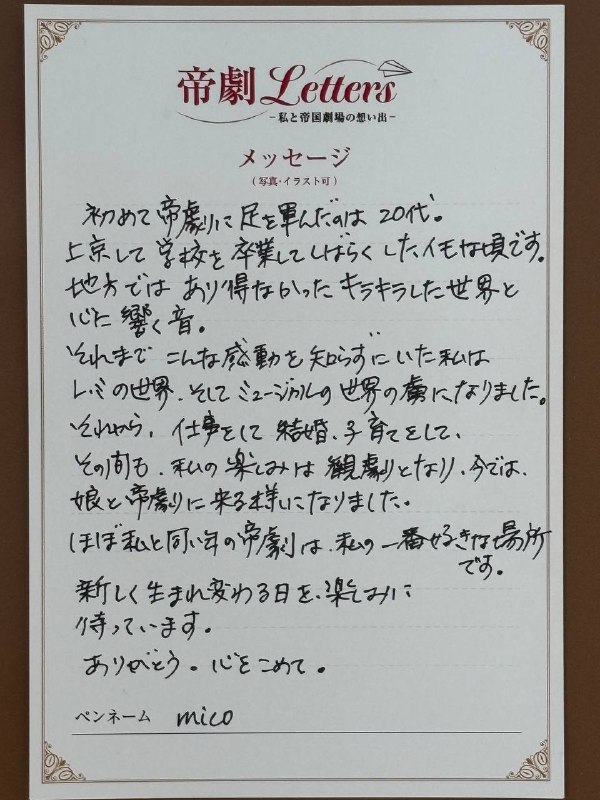 帝劇 Letters
-私と帝国劇場の想い出-
メッセージ
(写真・イラスト可)
初めて帝劇に足を運んだのは 20代。
上京して学校を卒業してしばらくしたイモな頃です。
地方では あり得なかった キラキラした世界と
心に響く音。
それまで こんな感動を知らずにいた私は
レミの世界、そしてミュージカルの世界の虜になりました。
それから、仕事をして 結婚、子育てをして、
その間も、私の楽しみは観劇となり、今では、
娘と帝劇に来る様になりました。
ほぼ私と同い年の帝劇は、私の一番好きな場所
です。
新しく生まれ変わる日を、楽しみに
待っています。
ありがとう。心をこめて。
ペンネーム mico